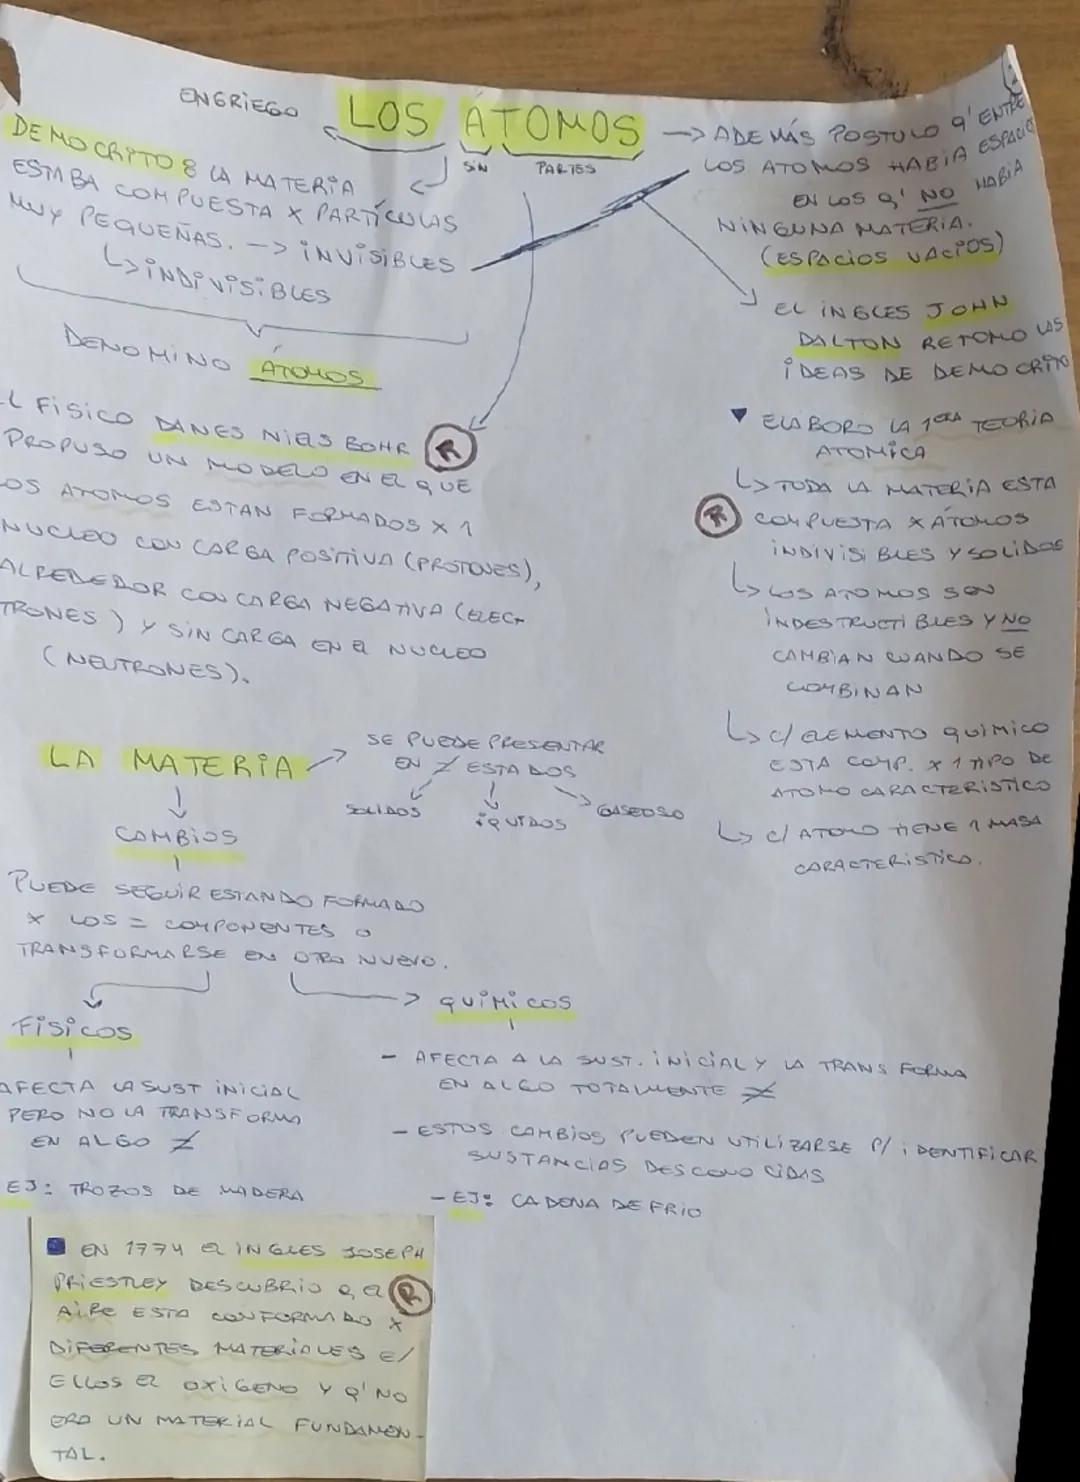 EN GRIEGO
LOS ÁTOMOS
SIN
PARTES
DEMOCRITO: LA MATERIA
ESTABA COMPUESTA X PARTÍCULAS
MUY PEQUEÑAS. -> INVISIBLES
INDIVISIBLES
DENOMINO ÁTOMOS
-> ADEMÁS POSTULO Q' ENTRE
LOS ATOMOS HABIA ESPACIOS
EN LOS Q' NO HABIA
NINGUNA MATERIA.
(ESPACIOS VACIOS)
EL INGLES JOHN
DALTON RETOMO LAS
IDEAS DE DEMOCRITO
ELABORO LA 1ERA TEORIA
ATOMICA
TODA LA MATERIA ESTA
R COMPUESTA X ÁTOMOS
INDIVISIBLES Y SOLIDOS
LOS ATOMOS SON
INDESTRUCTIBLES Y NO
CAMBIAN CUANDO SE
COMBINAN
C/ ELEMENTO QUIMICO
ESTA COMP. X 1 TIPO DE
ATOMO CARACTERISTICO
C/ ATOMO TIENE 1 MASA
CARACTERISTICA.
L FISICO DANES NIELS BOHR R
PROPUSO UN MODELO EN EL QUE
LOS ATOMOS ESTAN FORMADOS X 1
NUCLEO CON CARGA POSITIVA (PROTONES),
ALREDEDOR CON CARGA NEGATIVA (ELEC-
TRONES) Y SIN CARGA EN EL NUCLEO
(NEUTRONES).
LA MATERIA
SE PUEDE PRESENTAR
EN ≠ ESTADOS
SOLIDOS
IQUIDOS
GASEOSO
CAMBIOS
PUEDE SEGUIR ESTANDO FORMADO
X LOS = COMPONENTES O
TRANSFORMARSE EN OTRO NUEVO.
FISICOS
AFECTA LA SUST INICIAL
PERO NO LA TRANSFORMA
EN ALGO ≠
EJ: TROZOS DE MADERA
QUIMICOS
- AFECTA A LA SUST. INICIAL Y LA TRANSFORMA
EN ALGO TOTALMENTE ≠
- ESTOS CAMBIOS PUEDEN UTILIZARSE P/ IDENTIFICAR
SUSTANCIAS DESCONOCIDAS
- EJ: CADENA DE FRIO
EN 1774 EL INGLES JOSEPH
PRIESTLEY DESCUBRIO Q EL R
AIRE ESTA CONFORMADO X
DIFERENTES MATERIALES E/
ELLOS EL OXIGENO Y Q' NO
ERA UN MATERIAL FUNDAMEN-
TAL.